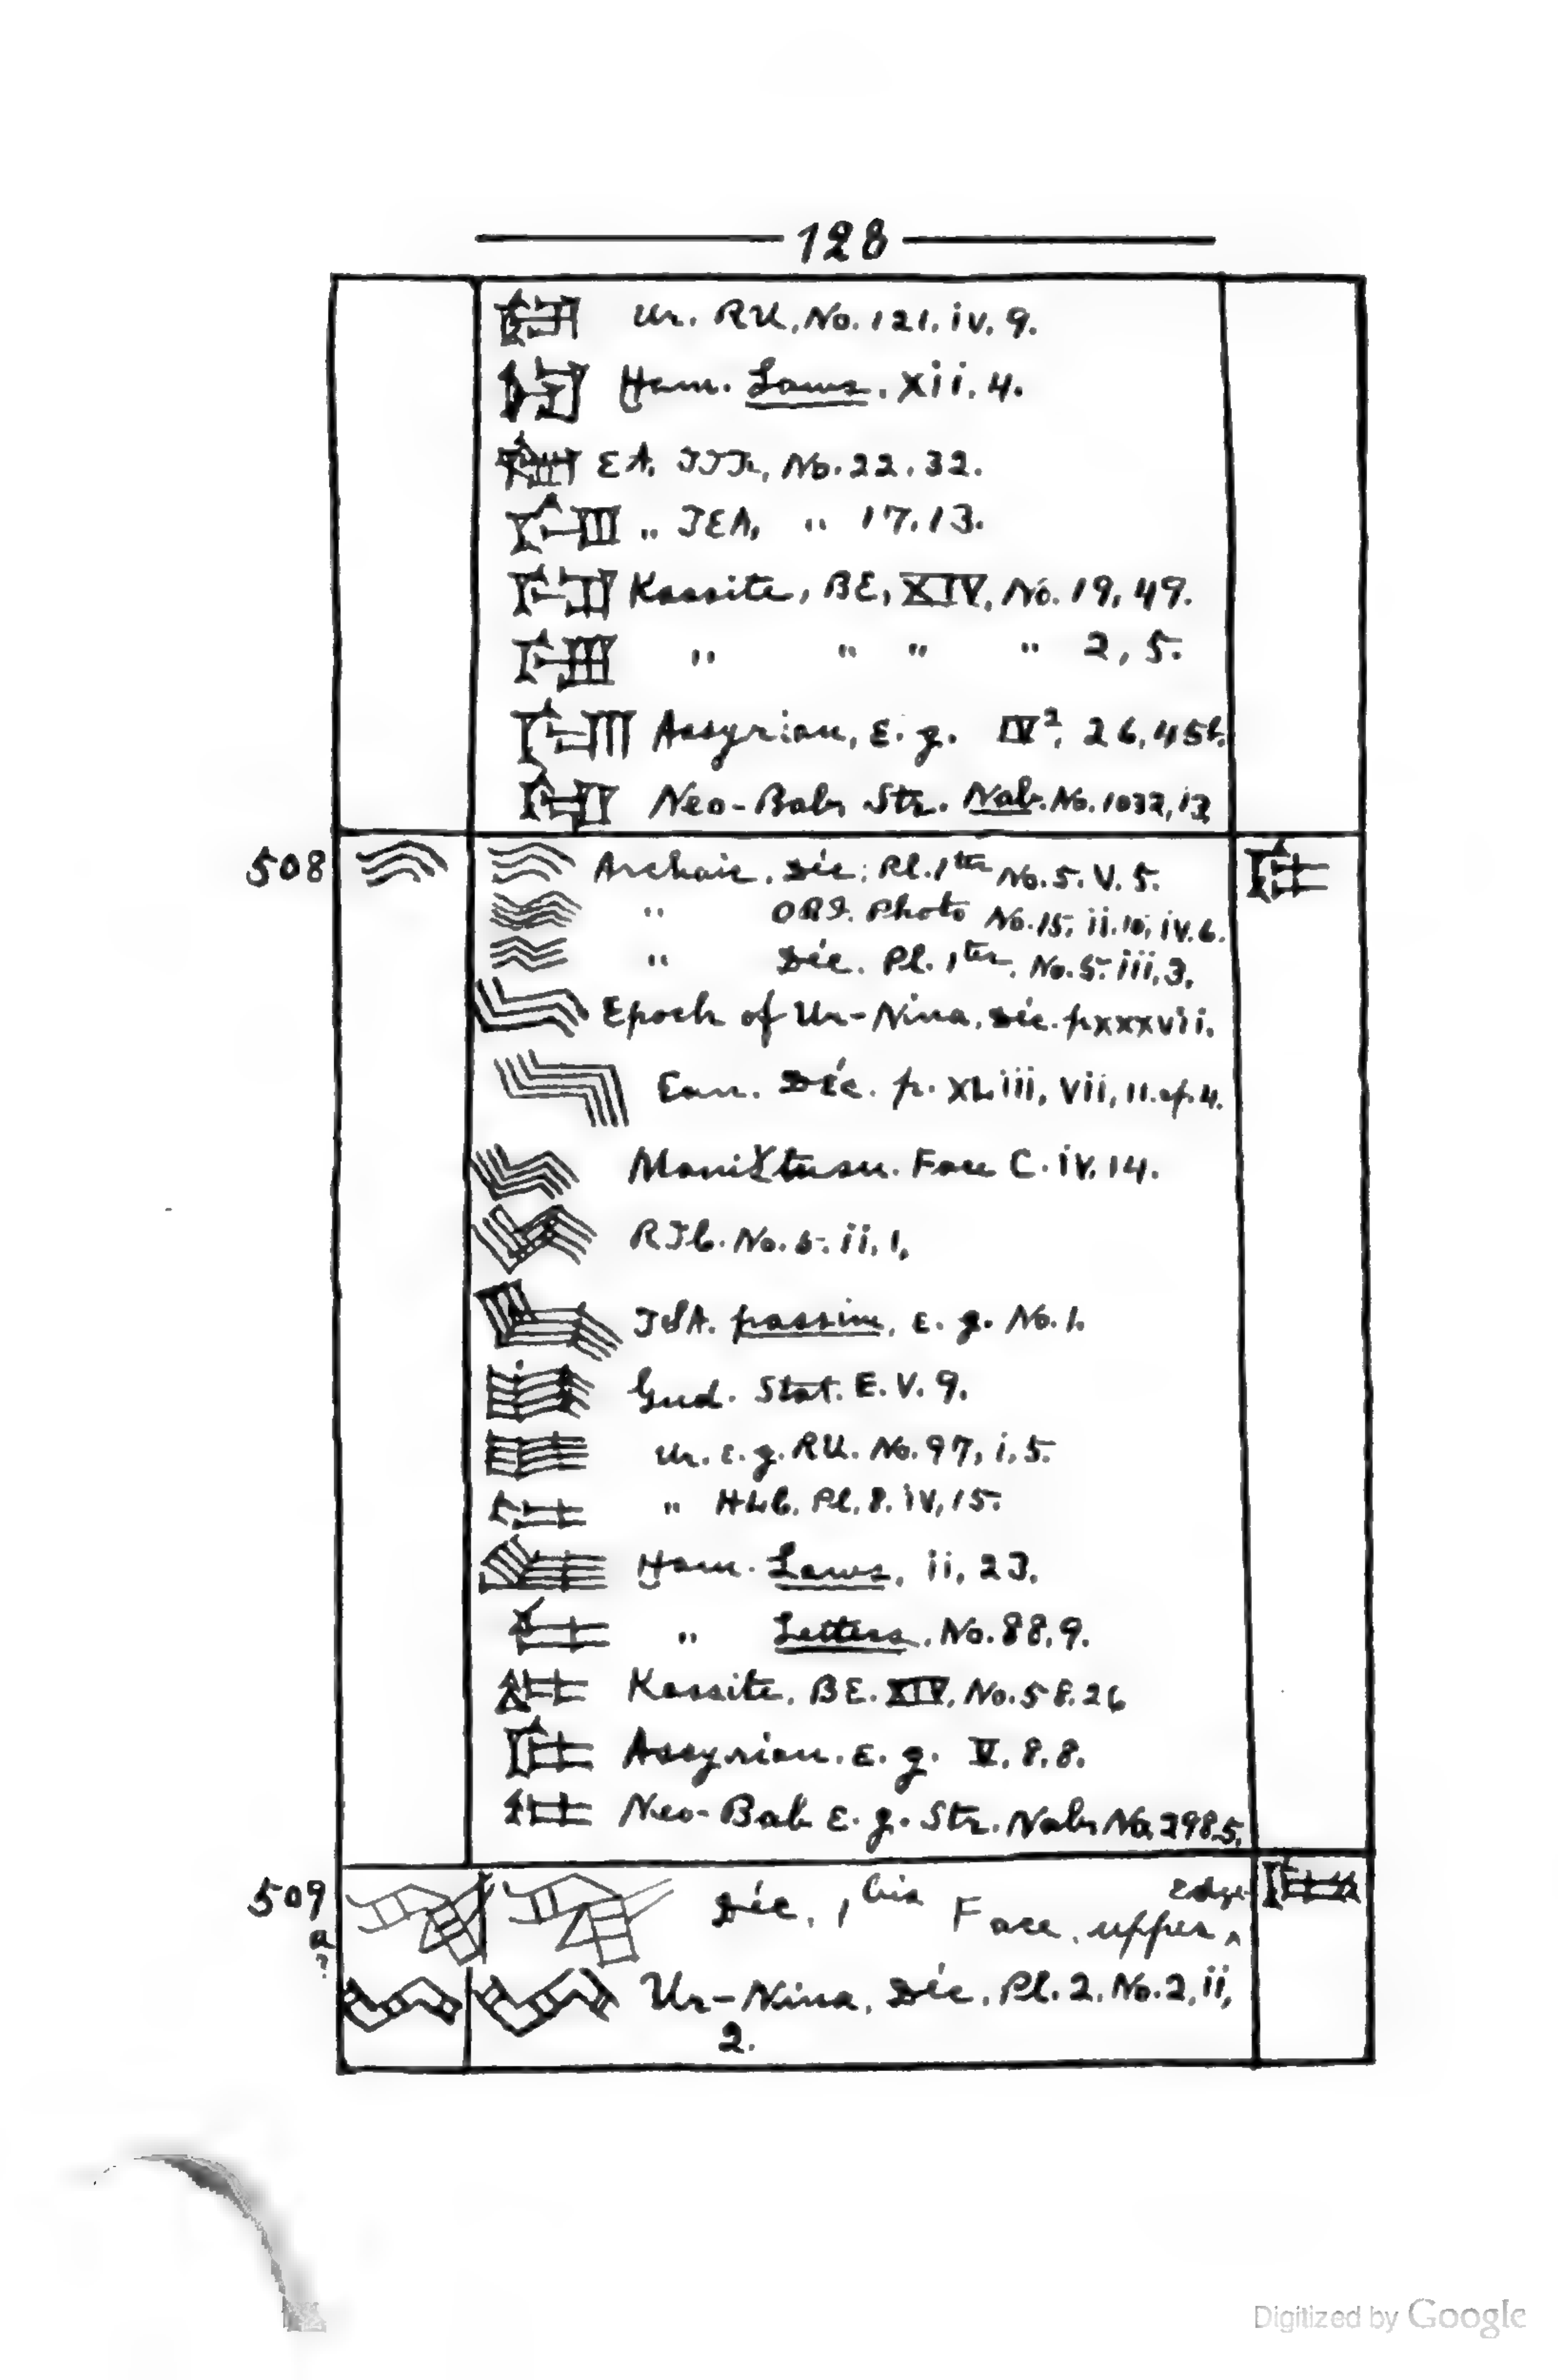 128
Ur. RU, No. 121. iv. 9.
Ḫam. Laws. xii. 4.
EA. No. 22. 32.
„ „ 17. 13.
Kassite, BE, XIV, No. 19, 49.
„ „ „ „ 2, 5.
Assyrian, e. g. IV², 26, 45b.
Neo-Bab Str. Nab. No. 1032, 13
508 Archaic. Déc. Pl. 1ter No. 5. V. 5.
„ Photo No. 15, ii. 10, iv. 6.
„ Déc. Pl. 1ter, No. 5. iii, 3.
Epoch of Ur-Nina, Déc. p. xxxvii.
Ean. Déc. p. XLiii, vii, 11. cf. 4.
Face C. iv. 14.
No. 5. ii, 1.
passim, e. g. No. 1.
Gud. Stat. E. V. 9.
Ur. e. g. RU. No. 97, i, 5.
„ HLC. Pl. 8. iv, 15.
Ḫam. Laws, ii, 23.
„ Letters, No. 88, 9.
Kassite, BE. XIV, No. 58. 26
Assyrian. e. g. V. 8. 8.
Neo-Bab e. g. Str. Nab No. 298. 5.
509 Déc, 1bis Face, upper edge
a
?
Ur-Nina, Déc. Pl. 2. No. 2, ii,
2.
Digitized by Google